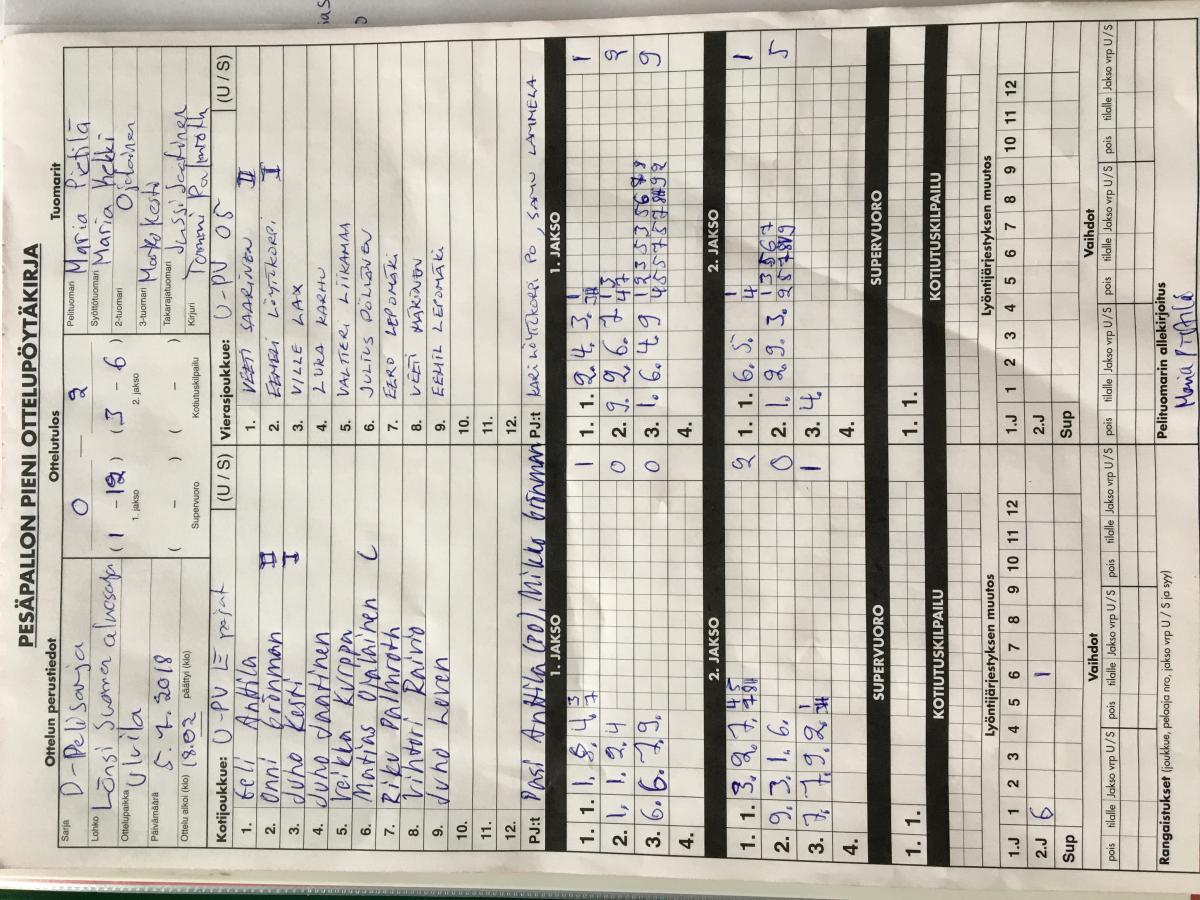 PESÄPALLON PIENI OTTELUPÖYTÄKIRJA
Ottelun perustiedot
Sarja D-Pelisarja
Lohko Länsi Suomen
Ottelupaikka Ulvila
Päivämäärä 5.7.2018
Ottelu alkoi (klo) 18.02 päättyi (klo)
Ottelutulos
0 2
( 1 - 12 ) ( 3 - 6 )
1. jakso 2. jakso
( - ) ( - )
Supervuoro Kotiutuskilpailu
Tuomarit
Pelituomari Maria Pietilä
Syöttötuomari Maria Hekki
2-tuomari Ojalainen
3-tuomari Marko Kesti
Takarajatuomari Jussi Jaatinen
Kirjuri Tommi Palmroth
Kotijoukkue: U-PV (U / S)
1. Eeli Anttila
2. Onni Grönman II
3. Juho Kesti I
4. Juho Jaatinen
5. Veikka Kurppa
6. Matias C
7. Riku Palmroth
8. Vihtori Raivio
9. Juho Leven
10.
11.
12.
PJ:t Pasi Anttila (PO), Mikko Grönman
Vierasjoukkue: U-PV 05 (U / S)
1. VEETI SAARINEN II
2. EEMELI LÖYTIKORPI I
3. VILLE LAX
4. LUKA KARHU
5. VALTTERI LIIKAMAA
6. JULIUS PÖLLÄNEN
7. EERO LEPOMÄKI
8. VEETI MÄKINEN
9. EEMIL LEPOMÄKI
10.
11.
12.
PJ:t KARI LÖYTIKORPI PO, SAMU LAMMELA
1. JAKSO
1. 1. 1. 8. 4. 3 7 1
2. 1. 1. 2 4 0
3. 6. 6. 7 9. 0
4.
1. JAKSO
1. 1. 2. 4. 3. 1
2. 9. 2. 6. 7 2
3. 1. 6. 4. 9 9
4.
2. JAKSO
1. 1. 3. 2. 7. 2
2. 9. 3. 1. 6. 0
3. 7. 7. 9. 2. 1
4.
2. JAKSO
1. 1. 6. 5. 1
2. 1. 2. 9. 3. 5
3. 4.
4.
SUPERVUORO
1. 1.
SUPERVUORO
1. 1.
KOTIUTUSKILPAILU
KOTIUTUSKILPAILU
Lyöntijärjestyksen muutos
1.J 1 2 3 4 5 6 7 8 9 10 11 12
2.J 6 1
Sup
Lyöntijärjestyksen muutos
1.J 1 2 3 4 5 6 7 8 9 10 11 12
2.J
Sup
Vaihdot
pois tilalle Jakso vrp U / S pois tilalle Jakso vrp U / S pois tilalle Jakso vrp U / S
Vaihdot
pois tilalle Jakso vrp U / S pois tilalle Jakso vrp U / S pois tilalle Jakso vrp U / S
Rangaistukset (joukkue, pelaaja nro, jakso vrp U / S ja syy)
Pelituomarin allekirjoitus
Maria Pietilä